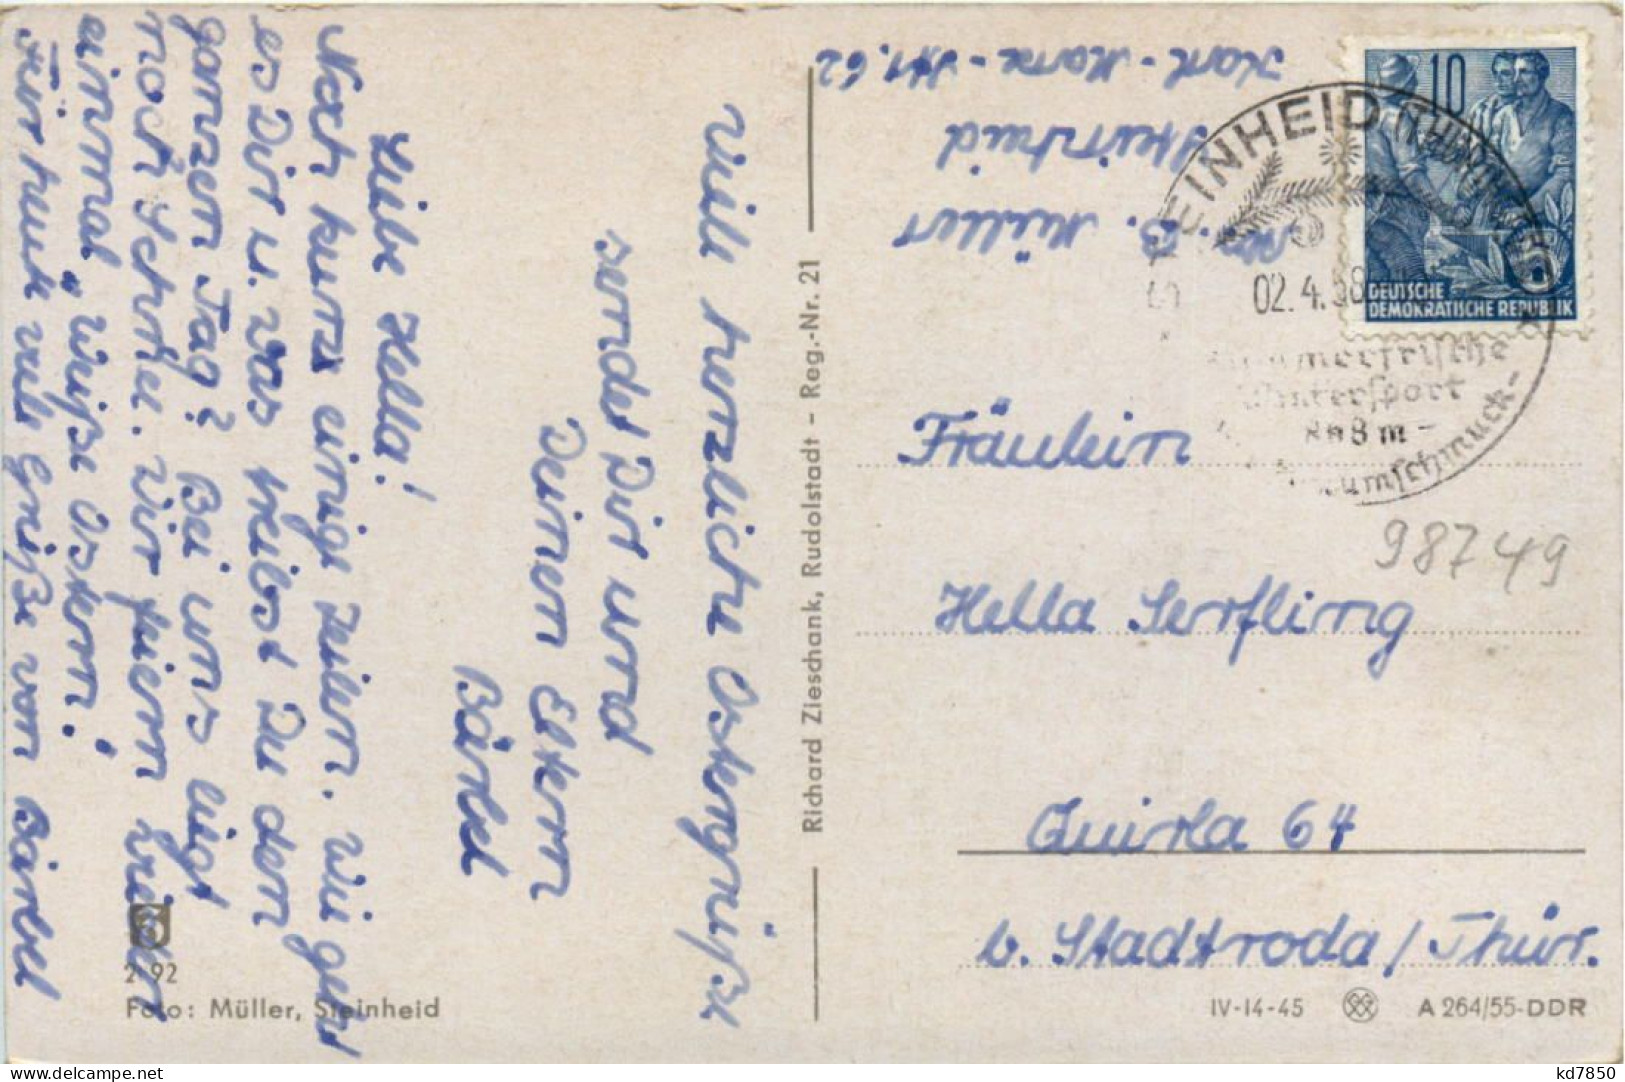 Viele herzliche Ostergrüße
sendet Dir und
Deinen Eltern
Bärbel
Liebe Hella!
Noch kurz einige Zeilen. Wie geht
es Dir u. was treibst Du den
ganzen Tag? Bei uns liegt
noch Schnee. Wir feiern wieder
einmal „Weiße Ostern".
Für heute viele Grüße von Bärbel
2 92
Foto: Müller, Steinheid
Richard Zieschank, Rudolstadt - Reg.-Nr. 21
B. Müller
Steinheid
Karl-Marx-Str. 62
10
DEUTSCHE
DEMOKRATISCHE REPUBLIK
STEINHEID (THÜRINGEN)
02.4.58
Sommerfrische
Wintersport
868 m
Baumschmuck-
98749
Fräulein
Hella Serfling
Quirla 64
b. Stadtroda/Thür.
IV-14-45
A 264/55-DDR
kd7850